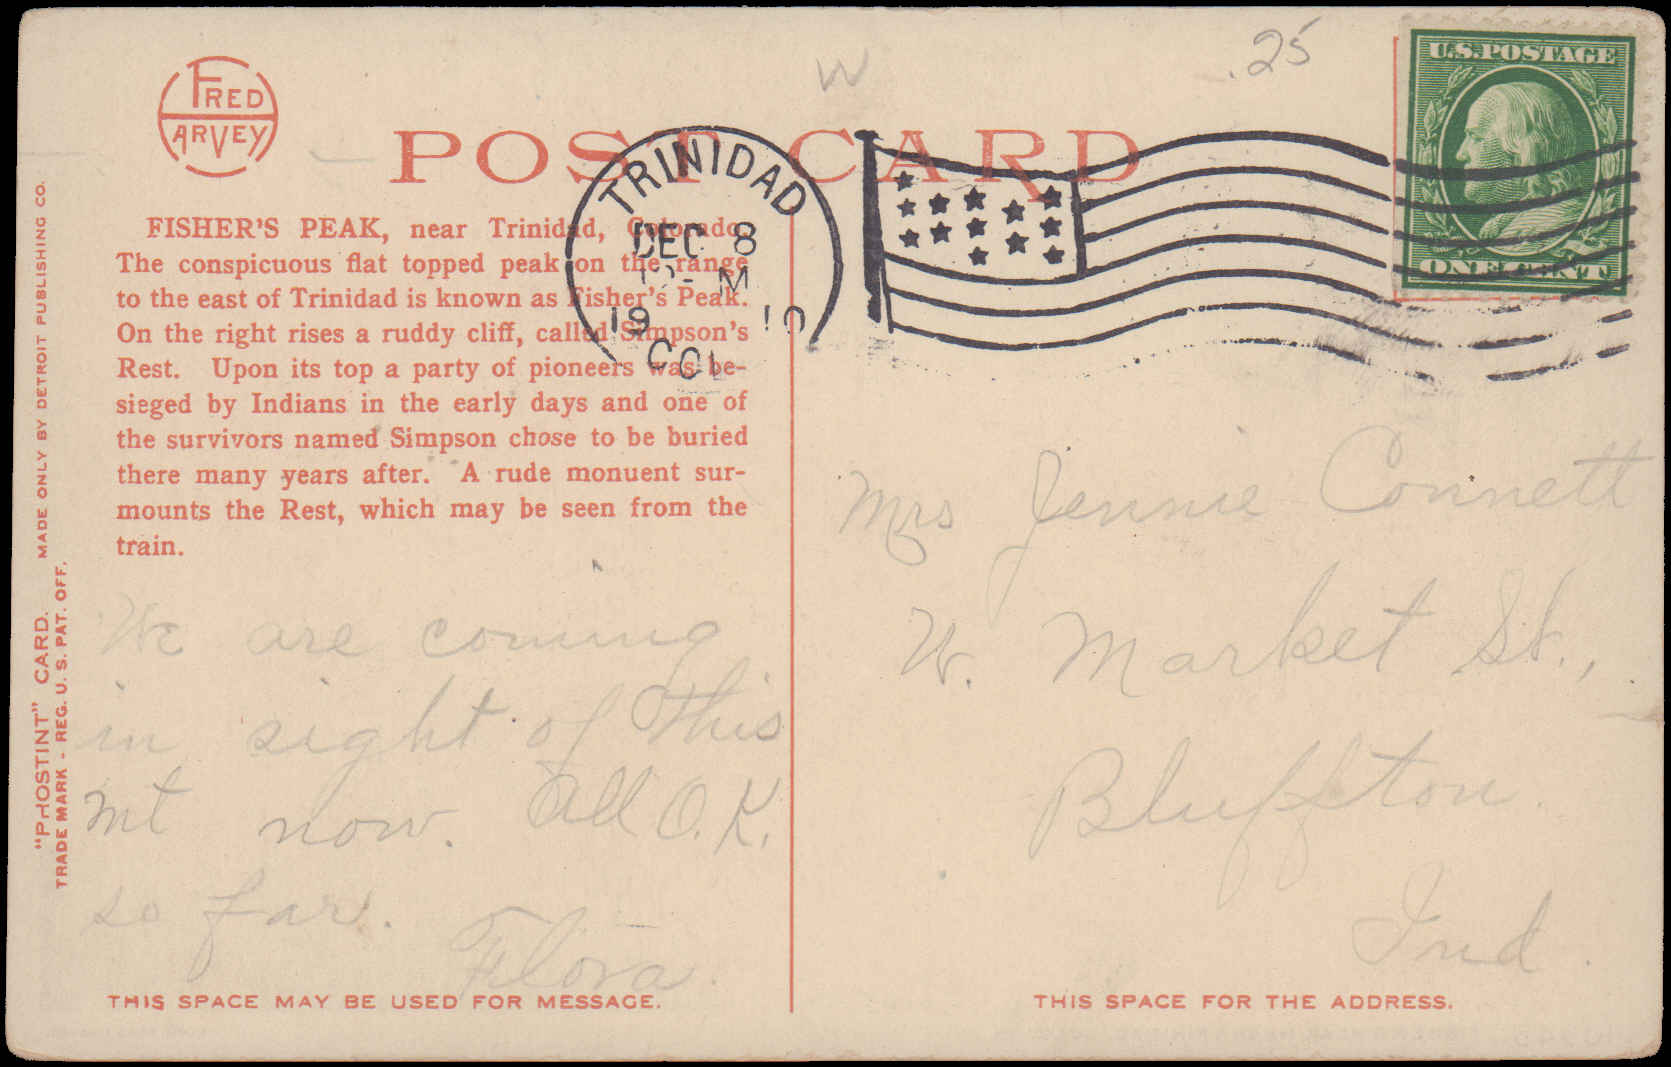 FRED
HARVEY
POST CARD
W
.25
U.S. POSTAGE
ONE CENT
TRINIDAD
DEC 8
12- M
19 10
COL
FISHER'S PEAK, near Trinidad, Colorado.
The conspicuous flat topped peak on the range
to the east of Trinidad is known as Fisher's Peak.
On the right rises a ruddy cliff, called Simpson's
Rest. Upon its top a party of pioneers was be-
sieged by Indians in the early days and one of
the survivors named Simpson chose to be buried
there many years after. A rude monuent sur-
mounts the Rest, which may be seen from the
train.
We are coming
in sight of this
mt now. All O.K.
so far.
Flora.
THIS SPACE MAY BE USED FOR MESSAGE.
Mrs Jennie Connett
W. Market St.,
Bluffton.
Ind.
THIS SPACE FOR THE ADDRESS.
"PHOSTINT" CARD. MADE ONLY BY DETROIT PUBLISHING CO.
TRADE MARK - REG. U. S. PAT. OFF.